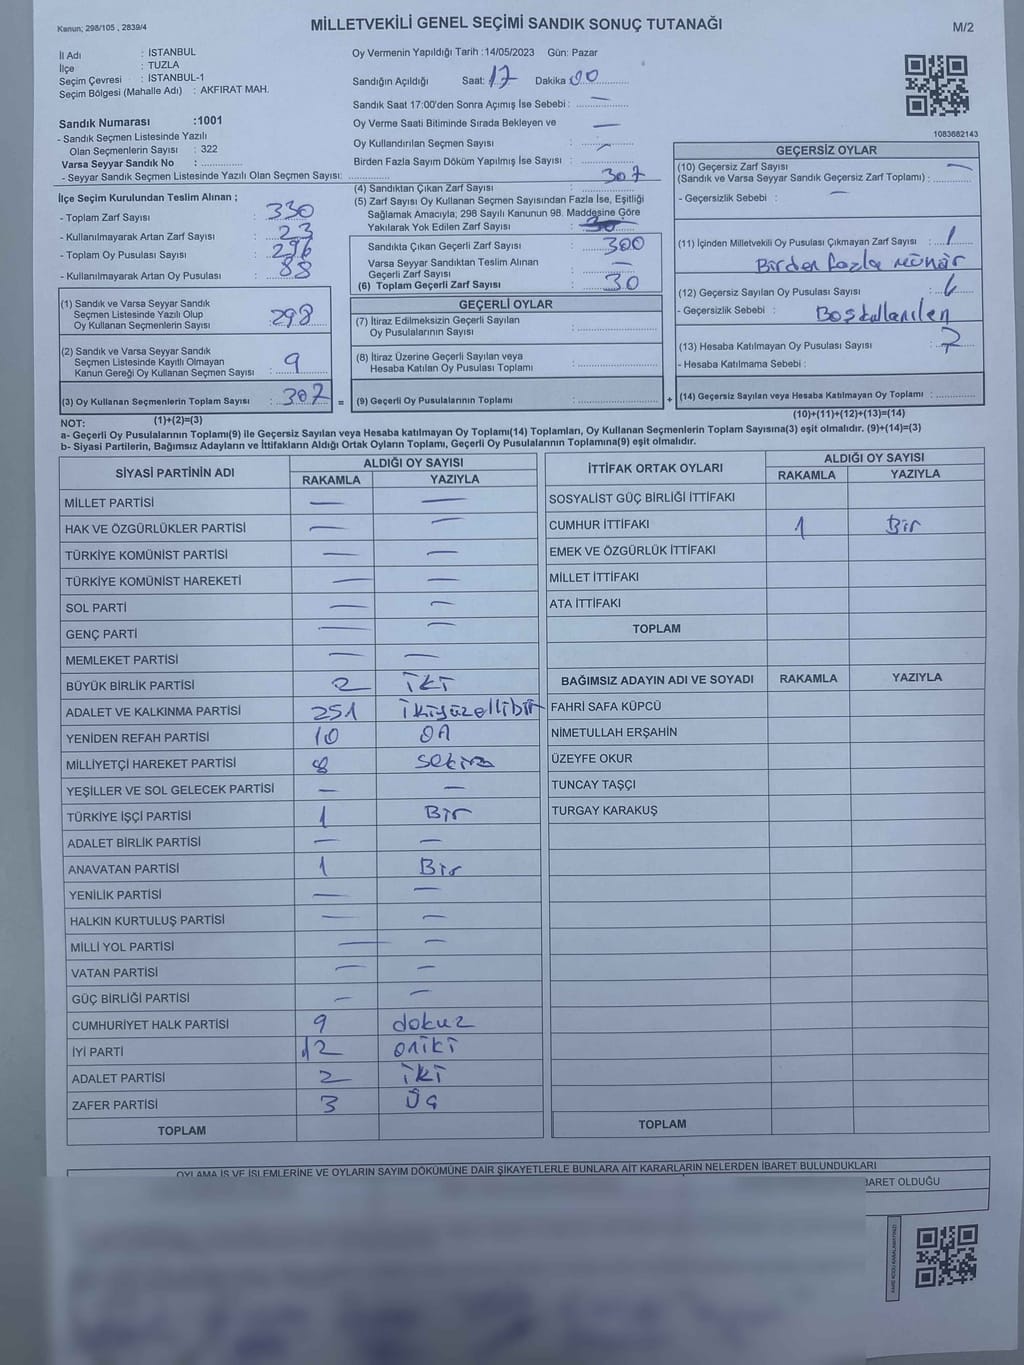 Kanun; 298/105 , 2839/4
MİLLETVEKİLİ GENEL SEÇİMİ SANDIK SONUÇ TUTANAĞI
M/2
İl Adı : İSTANBUL
İlçe : TUZLA
Seçim Çevresi : İSTANBUL-1
Seçim Bölgesi (Mahalle Adı) : AKFIRAT MAH.
Oy Vermenin Yapıldığı Tarih :14/05/2023 Gün: Pazar
Sandığın Açıldığı Saat: 17 Dakika 00
Sandık Saat 17:00'den Sonra Açımış İse Sebebi : —
Oy Verme Saati Bitiminde Sırada Bekleyen ve —
Oy Kullandırılan Seçmen Sayısı :
Birden Fazla Sayım Döküm Yapılmış İse Sayısı : —
1083682143
Sandık Numarası :1001
- Sandık Seçmen Listesinde Yazılı
Olan Seçmenlerin Sayısı : 322
Varsa Seyyar Sandık No :
- Seyyar Sandık Seçmen Listesinde Yazılı Olan Seçmen Sayısı:
İlçe Seçim Kurulundan Teslim Alınan ;
- Toplam Zarf Sayısı : 330
- Kullanılmayarak Artan Zarf Sayısı : 23
- Toplam Oy Pusulası Sayısı : 296
- Kullanılmayarak Artan Oy Pusulası : 88
(1) Sandık ve Varsa Seyyar Sandık
Seçmen Listesinde Yazılı Olup
Oy Kullanan Seçmenlerin Sayısı : 298
(2) Sandık ve Varsa Seyyar Sandık
Seçmen Listesinde Kayıtlı Olmayan
Kanun Gereği Oy Kullanan Seçmen Sayısı : 9
(3) Oy Kullanan Seçmenlerin Toplam Sayısı : 307 =
(4) Sandıktan Çıkan Zarf Sayısı : 307
(5) Zarf Sayısı Oy Kullanan Seçmen Sayısından Fazla İse, Eşitliği
Sağlamak Amacıyla; 298 Sayılı Kanunun 98. Maddesine Göre
Yakılarak Yok Edilen Zarf Sayısı :
Sandıkta Çıkan Geçerli Zarf Sayısı : 300
Varsa Seyyar Sandıktan Teslim Alınan
Geçerli Zarf Sayısı : —
(6) Toplam Geçerli Zarf Sayısı : 30
GEÇERLİ OYLAR
(7) İtiraz Edilmeksizin Geçerli Sayılan
Oy Pusulalarının Sayısı :
(8) İtiraz Üzerine Geçerli Sayılan veya
Hesaba Katılan Oy Pusulası Toplamı :
(9) Geçerli Oy Pusulalarının Toplamı : +
GEÇERSİZ OYLAR
(10) Geçersiz Zarf Sayısı
(Sandık ve Varsa Seyyar Sandık Geçersiz Zarf Toplamı) : —
- Geçersizlik Sebebi : —
(11) İçinden Milletvekili Oy Pusulası Çıkmayan Zarf Sayısı : 1
Birden fazla mühür
(12) Geçersiz Sayılan Oy Pusulası Sayısı : 6
- Geçersizlik Sebebi : Boş kullanılen
(13) Hesaba Katılmayan Oy Pusulası Sayısı : 7
- Hesaba Katılmama Sebebi :
(14) Geçersiz Sayılan veya Hesaba Katılmayan Oy Toplamı :
NOT: (1)+(2)=(3)
(10)+(11)+(12)+(13)=(14)
a- Geçerli Oy Pusulalarının Toplamı(9) ile Geçersiz Sayılan veya Hesaba katılmayan Oy Toplamı(14) Toplamları, Oy Kullanan Seçmenlerin Toplam Sayısına(3) eşit olmalıdır. (9)+(14)=(3)
b- Siyasi Partilerin, Bağımsız Adayların ve İttifakların Aldığı Ortak Oyların Toplamı, Geçerli Oy Pusulalarının Toplamına(9) eşit olmalıdır.
SİYASİ PARTİNİN ADI
ALDIĞI OY SAYISI
RAKAMLA YAZIYLA
MİLLET PARTİSİ — —
HAK VE ÖZGÜRLÜKLER PARTİSİ — —
TÜRKİYE KOMÜNİST PARTİSİ — —
TÜRKİYE KOMÜNİST HAREKETİ — —
SOL PARTİ — —
GENÇ PARTİ — —
MEMLEKET PARTİSİ — —
BÜYÜK BİRLİK PARTİSİ 2 İki
ADALET VE KALKINMA PARTİSİ 251 ikiyüzellibir
YENİDEN REFAH PARTİSİ 10 ON
MİLLİYETÇİ HAREKET PARTİSİ 8 sekiz
YEŞİLLER VE SOL GELECEK PARTİSİ — —
TÜRKİYE İŞÇİ PARTİSİ 1 Bir
ADALET BİRLİK PARTİSİ — —
ANAVATAN PARTİSİ 1 Bir
YENİLİK PARTİSİ — —
HALKIN KURTULUŞ PARTİSİ — —
MİLLİ YOL PARTİSİ — —
VATAN PARTİSİ — —
GÜÇ BİRLİĞİ PARTİSİ — —
CUMHURİYET HALK PARTİSİ 9 dokuz
İYİ PARTİ 12 oniki
ADALET PARTİSİ 2 iki
ZAFER PARTİSİ 3 Üç
TOPLAM
İTTİFAK ORTAK OYLARI
ALDIĞI OY SAYISI
RAKAMLA YAZIYLA
SOSYALİST GÜÇ BİRLİĞİ İTTİFAKI
CUMHUR İTTİFAKI 1 Bir
EMEK VE ÖZGÜRLÜK İTTİFAKI
MİLLET İTTİFAKI
ATA İTTİFAKI
TOPLAM
BAĞIMSIZ ADAYIN ADI VE SOYADI RAKAMLA YAZIYLA
FAHRİ SAFA KÜPCÜ
NİMETULLAH ERŞAHİN
ÜZEYFE OKUR
TUNCAY TAŞÇI
TURGAY KARAKUŞ
TOPLAM
OYLAMA İŞ VE İŞLEMLERİNE VE OYLARIN SAYIM DÖKÜMÜNE DAİR ŞİKAYETLERLE BUNLARA AİT KARARLARIN NELERDEN İBARET BULUNDUKLARI
BARET OLDUĞU